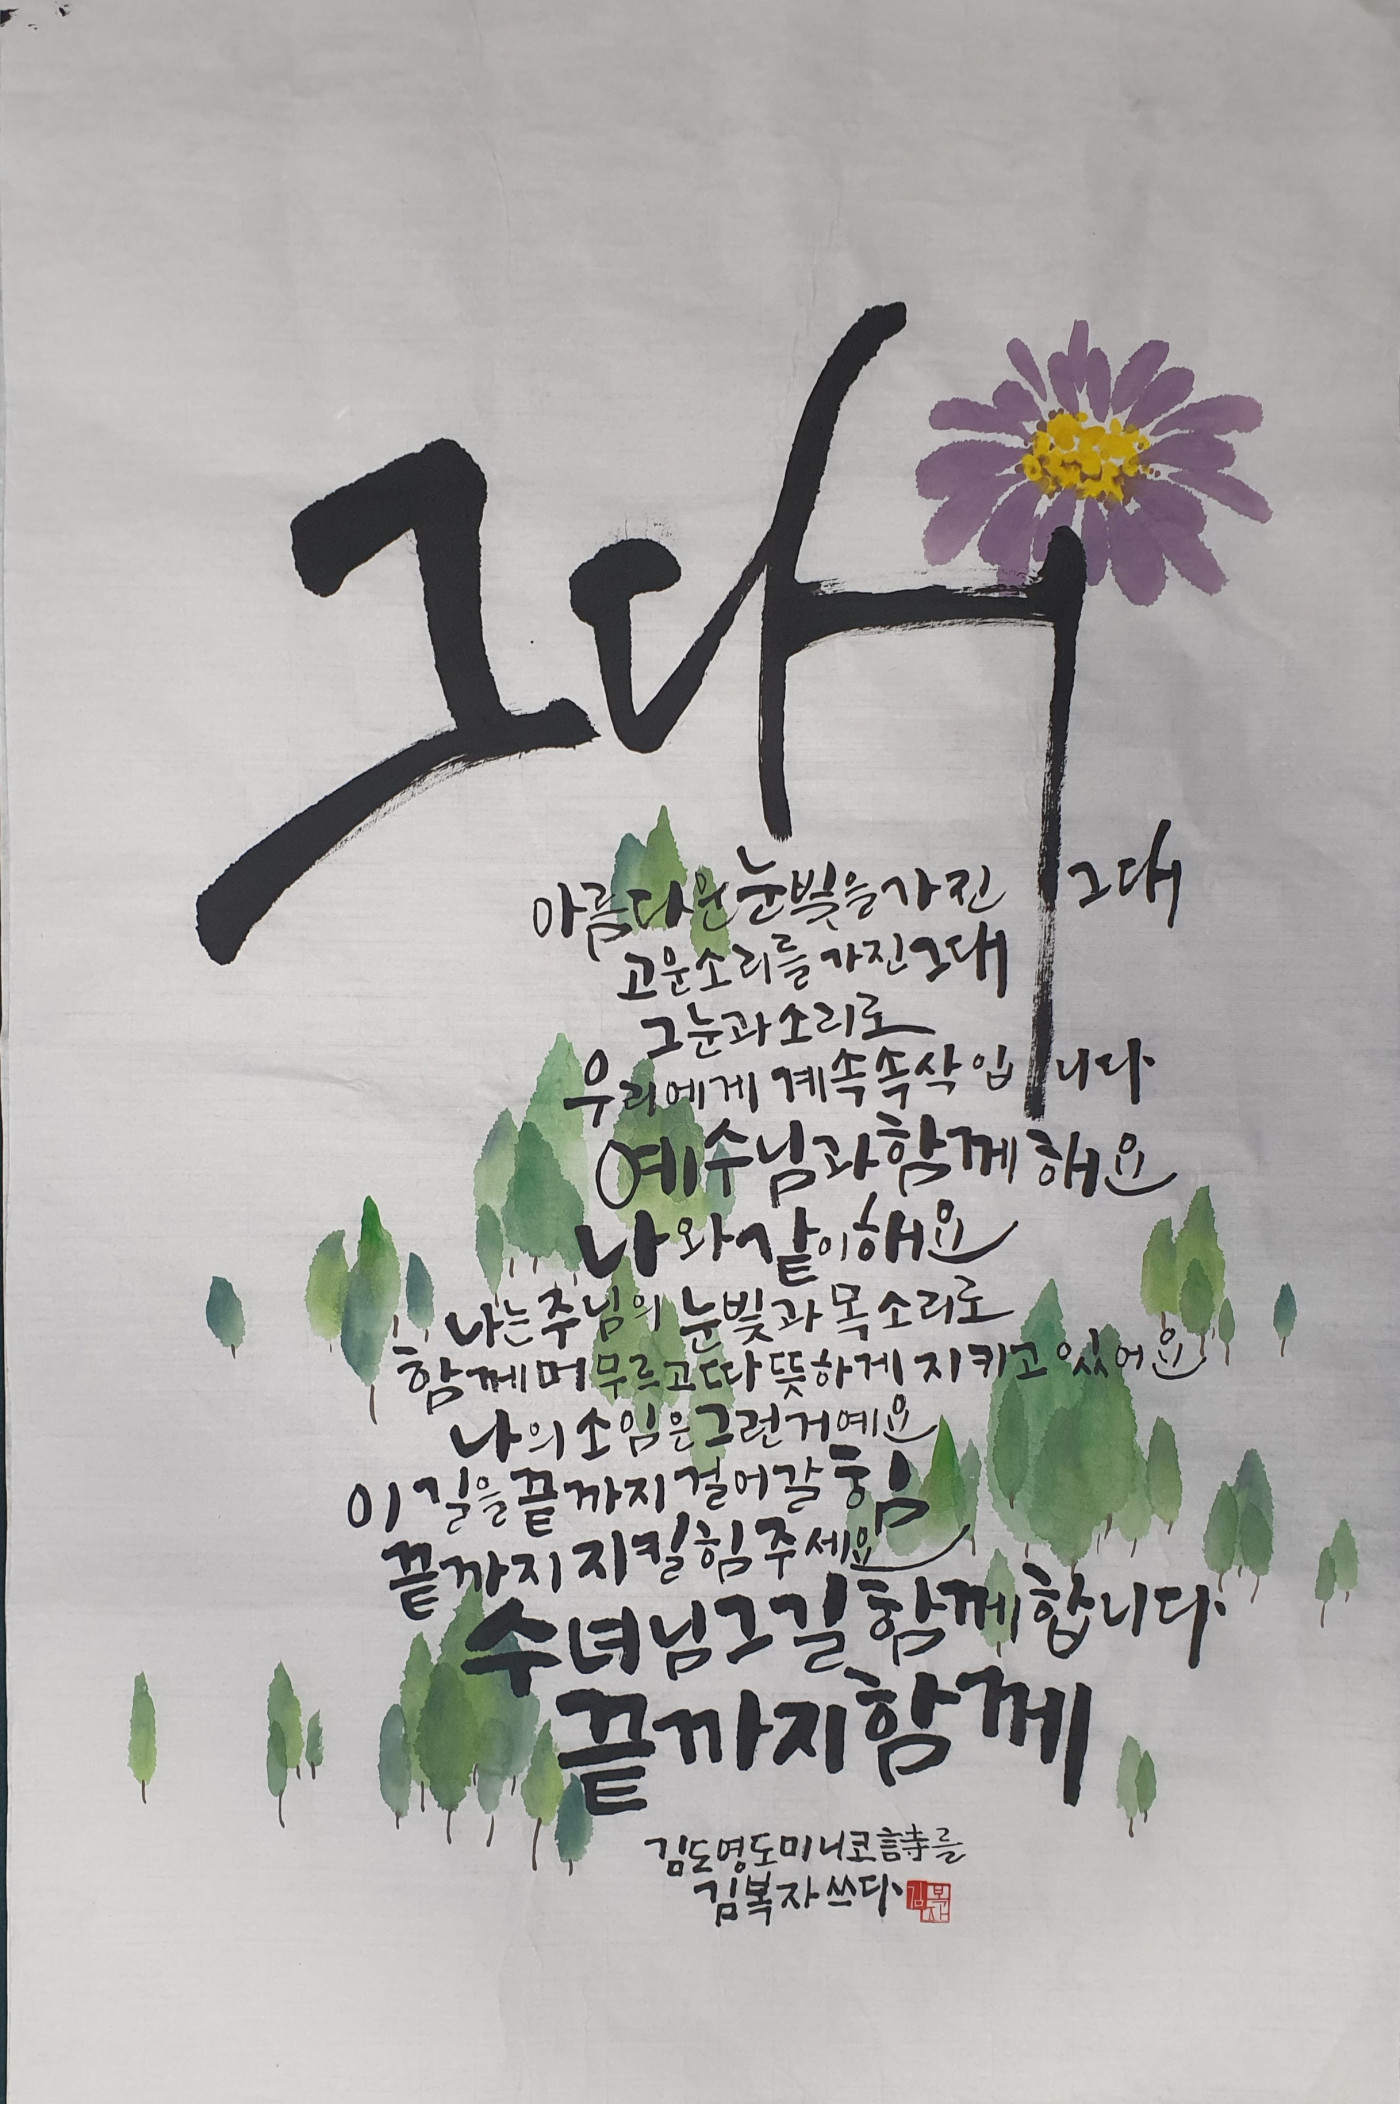 그대
아름다운 눈빛을 가진 그대
고운 소리를 가진 그대
그 눈과 소리로
우리에게 계속 속삭입니다.
예수님과 함께 해요
나와 같이 해요
나는 주님의 눈빛과 목소리로
함께 머무르고 따뜻하게 지키고 있어요
나의 소임은 그런거예요
이 길을 끝까지 걸어갈 힘
끝까지 지킬 힘 주세요
수녀님 그 길 함께 합니다.
끝까지 함께
김도영도미니코 詩를
김복자 쓰다.
김복자